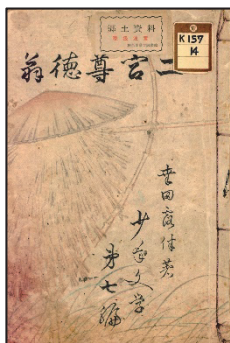 郷土資料
K157
14
翁徳尊宮二
幸田露伴著
少年文学
第七編